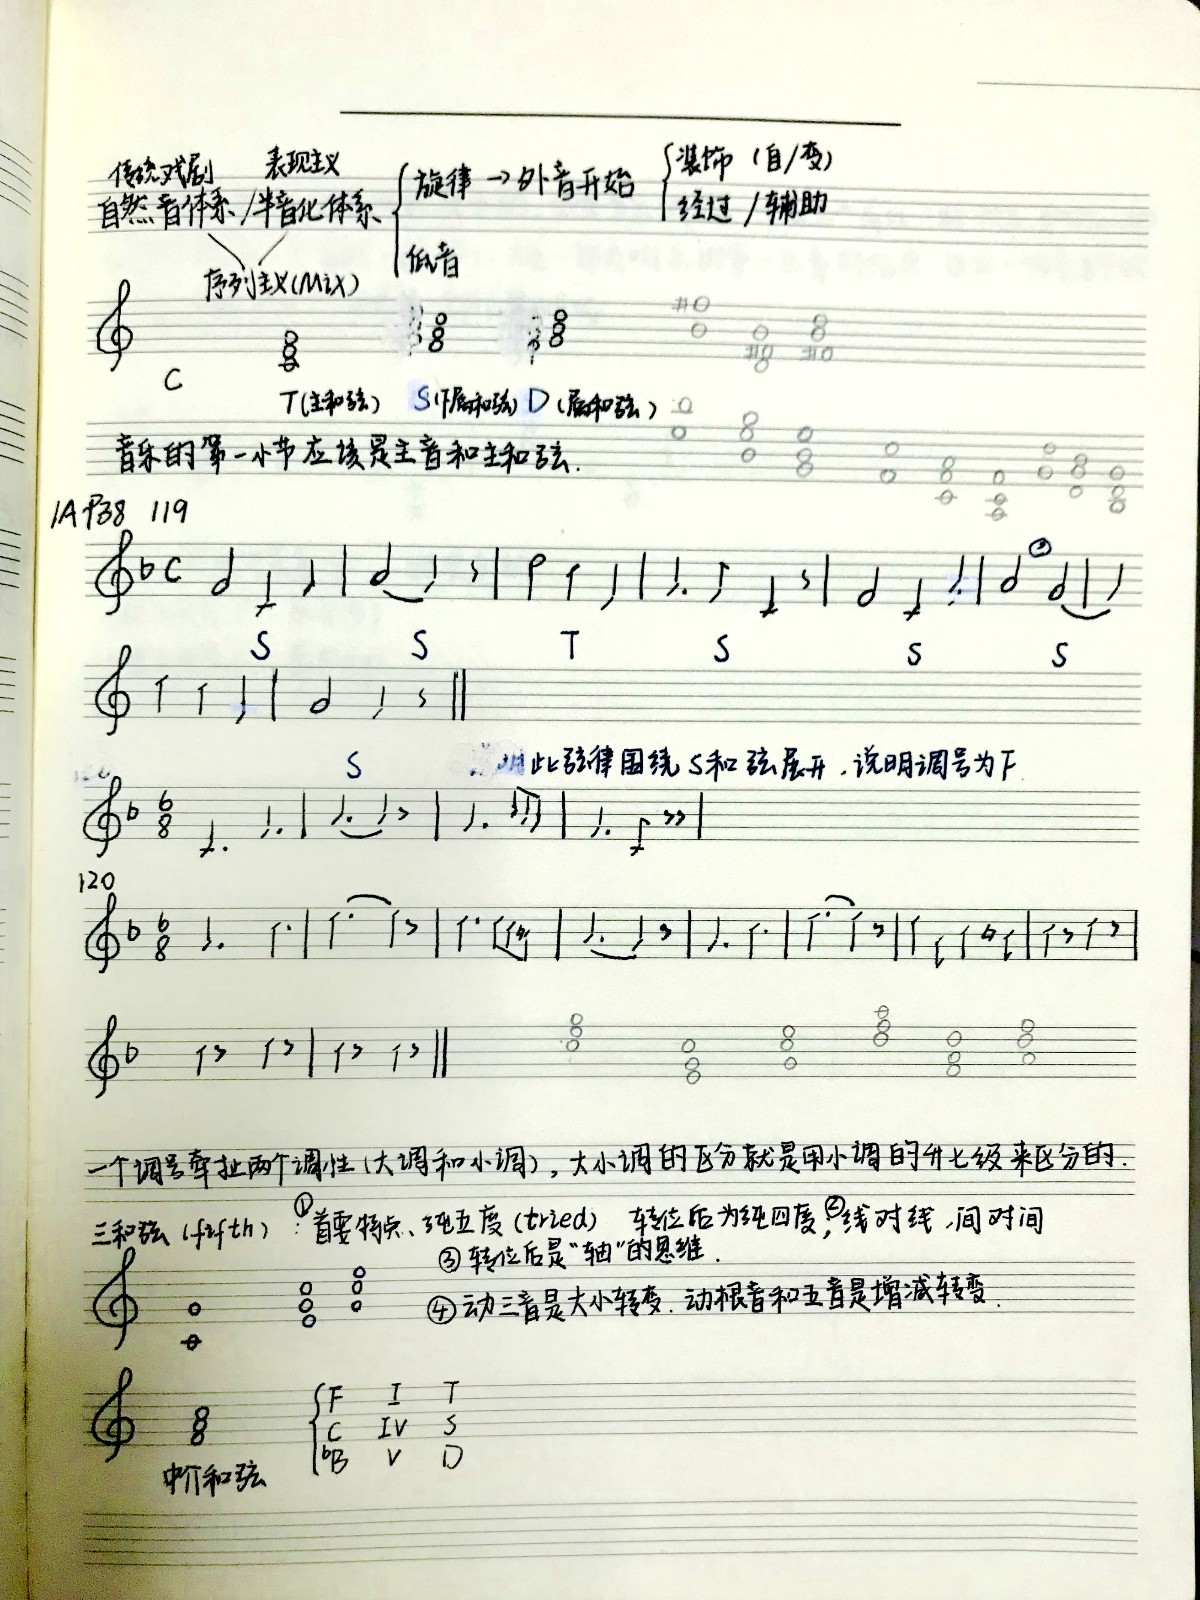 传统戏剧 表现主义
自然音体系/半音化体系 旋律→外音开始 装饰(自/变)
经过/辅助
低音
序列主义(Mix)
C
T(主和弦) S(下属和弦) D(属和弦)
音乐的第一小节应该是主音和主和弦.
1A P38 119
C
S S T S S S
S 此弦律围绕S和弦展开.说明调号为F
6
8
120
6
8
一个调号牵扯两个调性(大调和小调),大小调的区分就是用小调的升七级来区分的.
三和弦(fifth):①首要特点、纯五度(tried) 转位后为纯四度,②线对线,间对间
③转位后是"轴"的思维.
④动三音是大小转变.动根音和五音是增减转变.
F I T
C IV S
bB V D
中介和弦